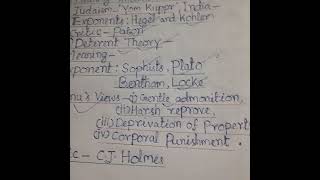 Judaism "Yom Kuppr", India-
Exponents: Hegel and Kohler
Critic - Paton
Deterent Theory -
eaning -
ponent: Sophists, Plato
Bentham, Locke
nu's Views - (i) Gentle admonition,
(ii) Harsh reprove,
(iii) Deprivation of Propert
(iv) Corporal Punishment.
ic - C.J. Holmes